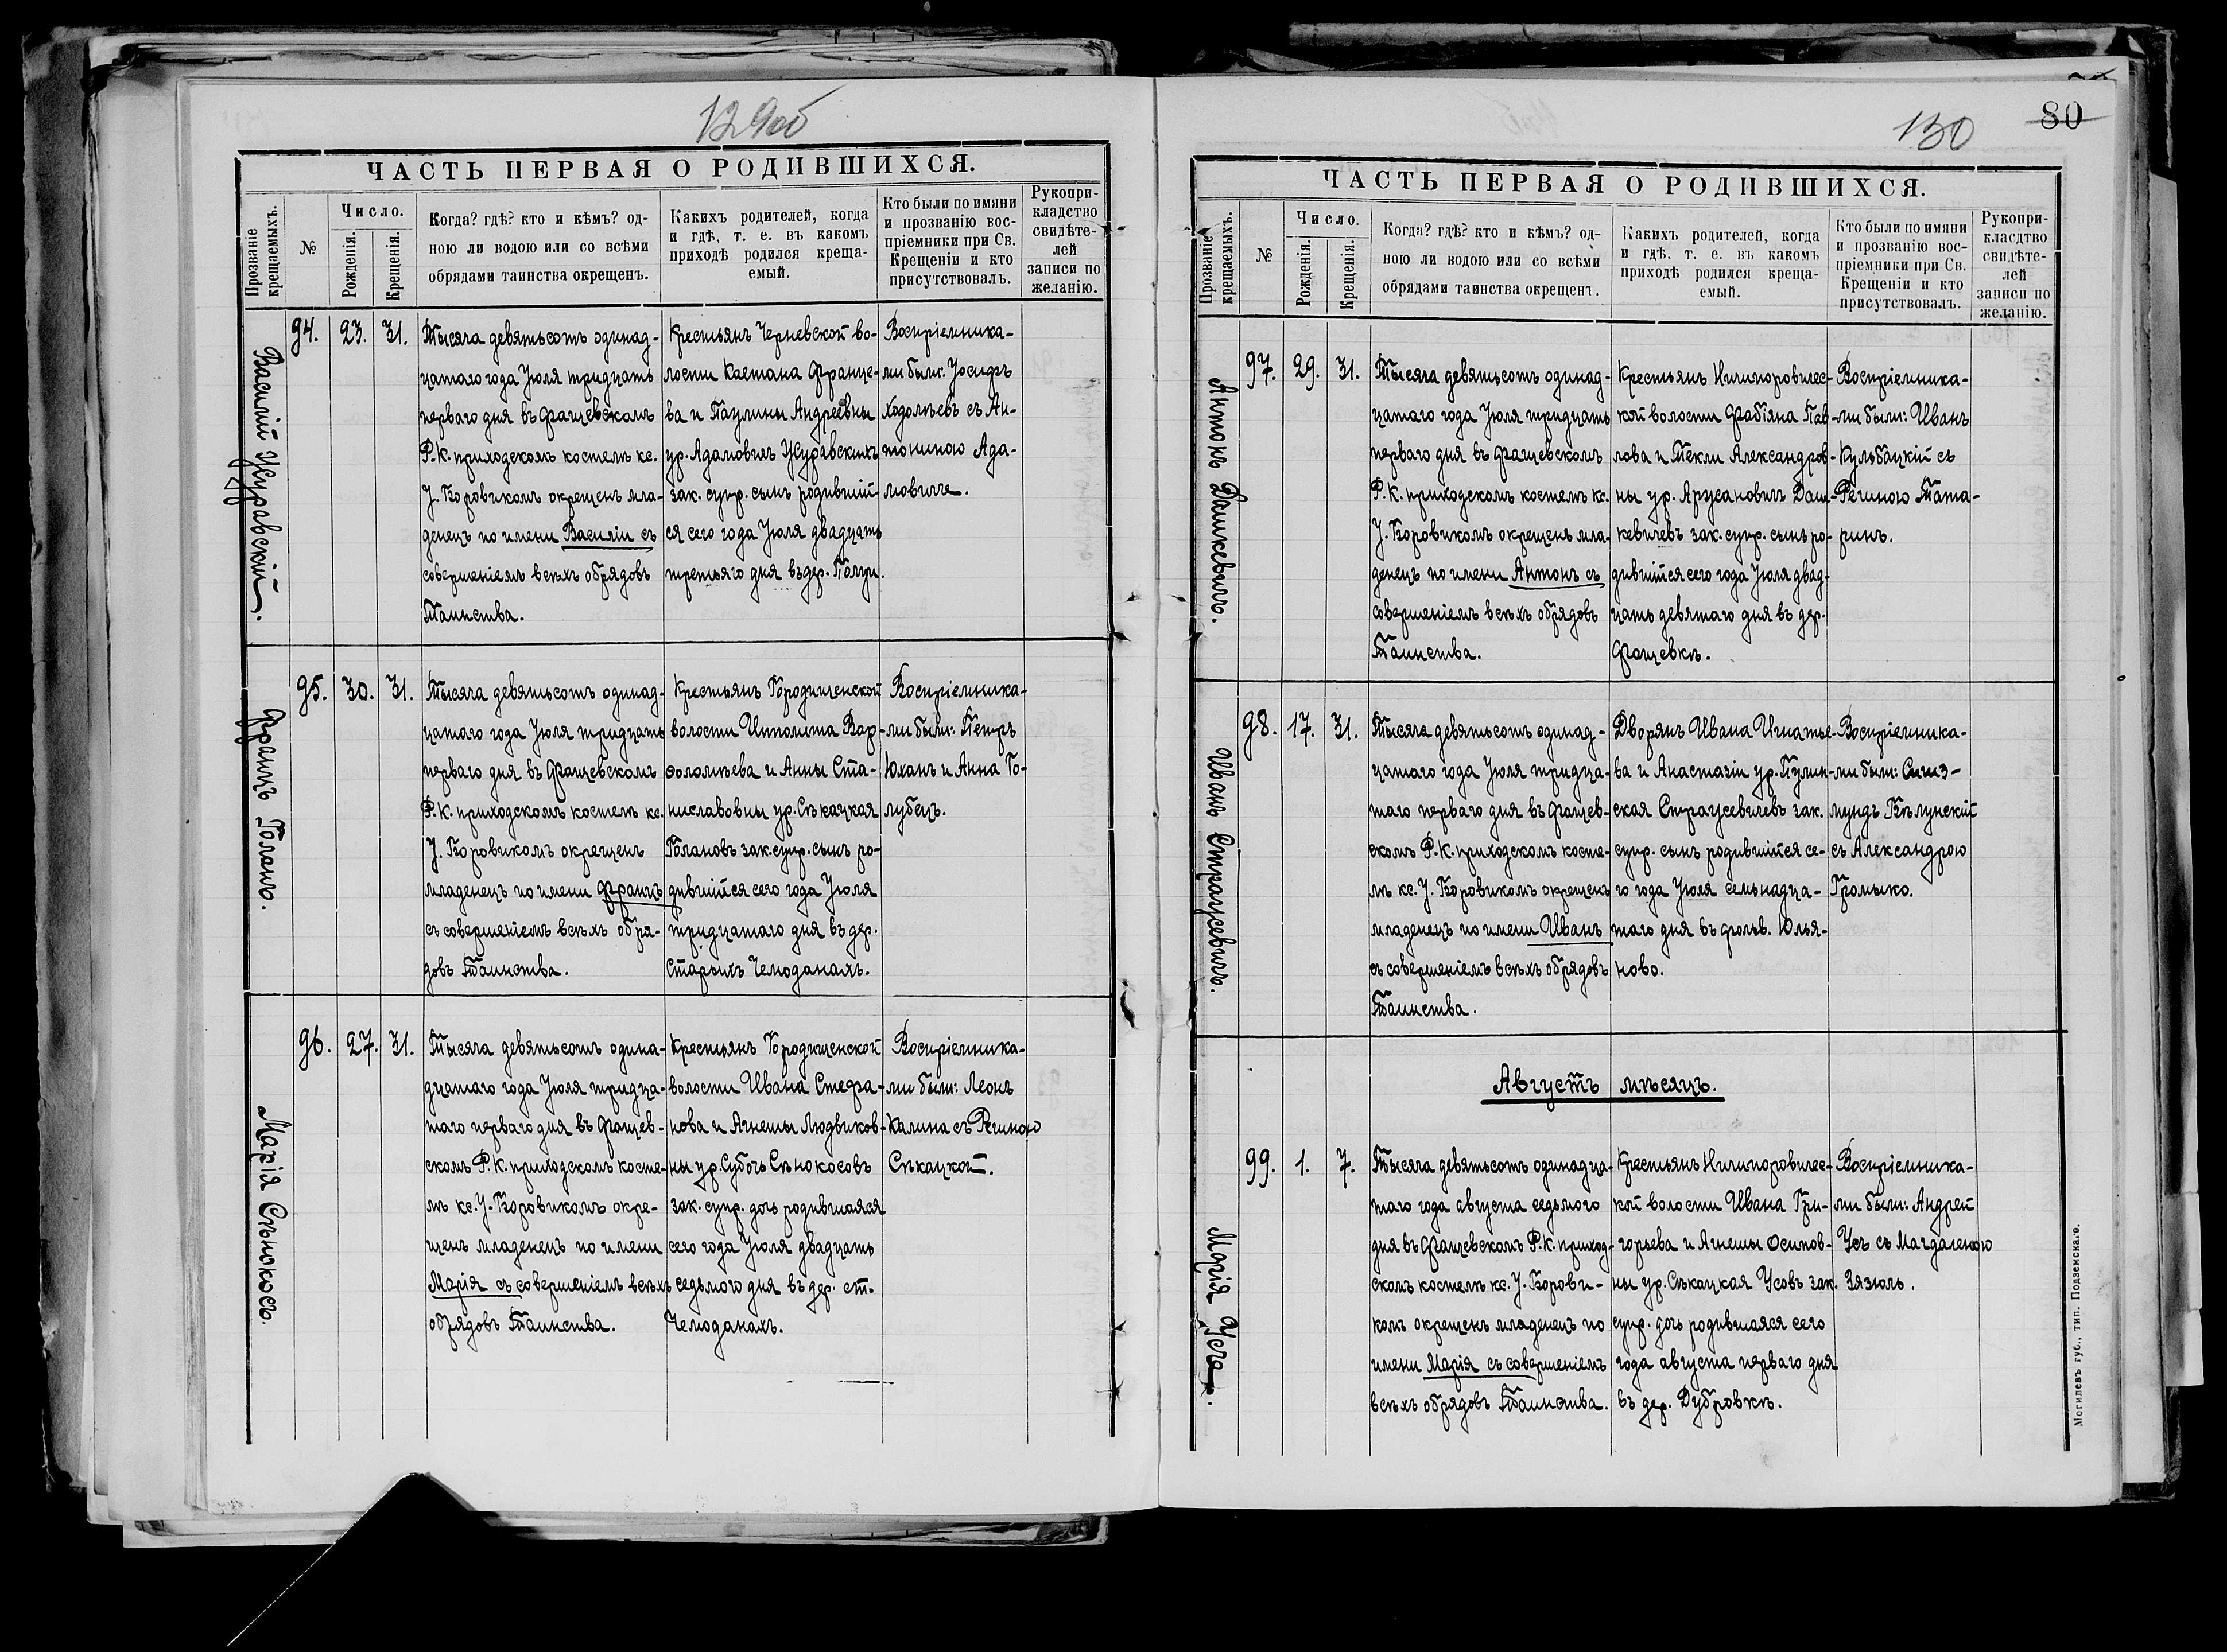 129об
ЧАСТЬ ПЕРВАЯ О РОДИВШИХСЯ.
Прозваніе крещаемыхъ.
№
Число.
Рожденія.
Крещенія.
Когда? гдѣ? кто и кѣмъ? од-
ною ли водою или со всѣми
обрядами таинства окрещенъ.
Какихъ родителей, когда
и гдѣ, т. е. въ какомъ
приходѣ родился креща-
емый.
Кто были по имяни
и прозванію вос-
пріемники при Св.
Крещеніи и кто
присутствовалъ.
Рукопри-
кладство
свидѣте-
лей
записи по
желанію.
Василій Журавскій.
94.
23.
31.
Тысяча девятьсотъ одинад-
цатаго года Іюля тридцать
перваго дня въ Фащевскомъ
Р.К. приходскомъ костелѣ кс.
І. Боровикомъ окрещенъ мла-
денецъ по имени Василій съ
совершеніемъ всѣхъ обрядовъ
Таинства.
Крестьянъ Черневской во-
лости Каетана Францe-
ва и Паулины Андреевны
ур. Адамовичъ Журавскихъ
зак. супр. сынъ родившій-
ся сего года Іюля двадцать
третьяго дня въ дер.
Воспріемника-
ми были: Іосифъ
Ходолѣевъ съ Ан-
тониною Ада-
мовичъ.
Францъ Голанъ.
95.
30.
31.
Тысяча девятьсотъ одинад-
цатаго года Іюля тридцать
перваго дня въ Фащевскомъ
Р.К. приходскомъ костелѣ кс.
І. Боровикомъ окрещенъ
младенецъ по имени Францъ
съ совершеніемъ всѣхъ обря-
довъ Таинства.
Крестьянъ Городищенской
волости Ипполита Вар-
фоломѣева и Анны Ста-
ниславовны ур. Сѣкацкая
Голановъ зак. супр. сынъ ро-
дившійся сего года Іюля
тридцатаго дня въ дер.
Старыхъ Чемоданахъ.
Воспріемника-
ми были: Петръ
Юханъ и Анна Го-
лубецъ.
Марія Сѣнокосъ.
96.
27.
31.
Тысяча девятьсотъ одина-
дцатаго года Іюля тридца-
таго перваго дня въ Фащев-
скомъ Р.К. приходскомъ косте-
лѣ кс. І. Боровикомъ окре-
щенъ младенецъ по имени
Марія съ совершеніемъ всѣхъ
обрядовъ Таинства.
Крестьянъ Городищенской
волости Ивана Стефа-
нова и Агнешы Людвиков-
ны ур. Субочь Сѣнокосовъ
зак. супр. дочь родившаяся
сего года Іюля двадцать
седьмого дня въ дер. ст.
Чемоданахъ.
Воспріемника-
ми были: Леонъ
Калина съ Региною
Сѣкацкой.
130
80
ЧАСТЬ ПЕРВАЯ О РОДИВШИХСЯ.
Прозваніе крещаемыхъ.
№
Число.
Рожденія.
Крещенія.
Когда? гдѣ? кто и кѣмъ? од-
ною ли водою или со всѣми
обрядами таинства окрещенъ.
Какихъ родителей, когда
и гдѣ. т. е. въ какомъ
приходѣ родился креща-
емый.
Кто были по имяни
и прозванію вос-
пріемники при Св.
Крещеніи и кто
присутствовалъ.
Рукопри-
класдтво
свидѣте-
лей
записи по
желанію.
Антонъ Дашкевичъ.
97.
29.
31.
Тысяча девятьсотъ одинад-
цатаго года Іюля тридцать
перваго дня въ Фащевскомъ
Р.К. приходскомъ костелѣ кс.
І. Боровикомъ окрещенъ мла-
денецъ по имени Антонъ съ
совершеніемъ всѣхъ обрядовъ
Таинства.
Крестьянъ Ничипоровичес-
кой волости Фабіяна Пав-
лова и Теклы Александров-
ны ур. Арцановичъ Даш-
кевичевъ зак. супр. сынъ ро-
дившійся сего года Іюля двад-
цать девятаго дня въ дер.
Фащевкѣ.
Воспріемника-
ми были: Иванъ
Кульбацкій съ
Региною Тата-
ринъ.
Иванъ Страусевичъ.
98.
17.
31.
Тысяча девятьсотъ одинад-
цатаго года Іюля тридца-
таго перваго дня въ Фащев-
скомъ Р.К. приходскомъ косте-
лѣ кс. І. Боровикомъ окрещенъ
младенецъ по имени Иванъ
съ совершеніемъ всѣхъ обрядовъ
Таинства.
Дворянъ Ивана Игнатье-
ва и Анастазіи ур. Пулин-
ская Страусевичевъ зак.
супр. сынъ родившійся се-
го года Іюля семьнадца-
таго дня въ фольв. Юлья-
ново.
Воспріемника-
ми были: Сигиз-
мундъ Бѣлунскій
съ Александрою
Громыко.
Августъ мѣсяцъ.
Марія Усъ.
99.
1.
7.
Тысяча девятьсотъ одинадца-
таго года августа седьмого
дня въ Фащевскомъ Р.К. приход-
скомъ костелѣ кс. І. Борови-
комъ окрещенъ младенецъ по
имени Марія съ совершеніемъ
всѣхъ обрядовъ Таинства.
Крестьянъ Ничипоровичес-
кой волости Ивана Гри-
горьева и Агнешы Осипов-
ны ур. Сѣкацкая Усовъ зак.
супр. дочь родившаяся сего
года августа перваго дня
въ дер. Дубровкѣ.
Воспріемника-
ми были: Андрей
Усъ съ Магдаленою
Зязюль.
Могилевъ губ., тип. Подземскаго.